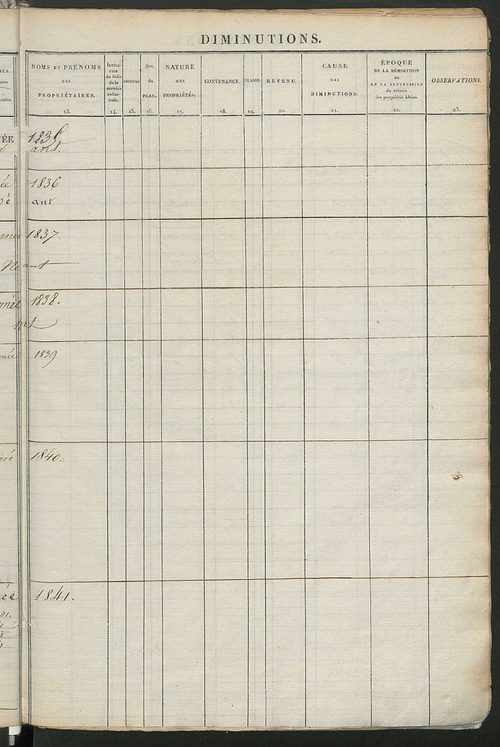 DIMINUTIONS.
NOMS ET PRÉNOMS
DES
PROPRIÉTAIRES.
13.
14.
15.
Nos
du
PLAN.
16.
NATURE
DES
PROPRIÉTÉS.
17.
CONTENANCE.
18.
CLASSE.
19.
REVENU.
20.
CAUSE
DES
DIMINUTIONS.
21.
ÉPOQUE
DE LA DÉMOLITION
OU
DE LA SUPPRESSION
du revenu
des propriétés bâties.
22.
OBSERVATIONS.
23.
ÉE
née 1836
ant
1837.
Néant
1838.
1839
1840.
ée 1841.